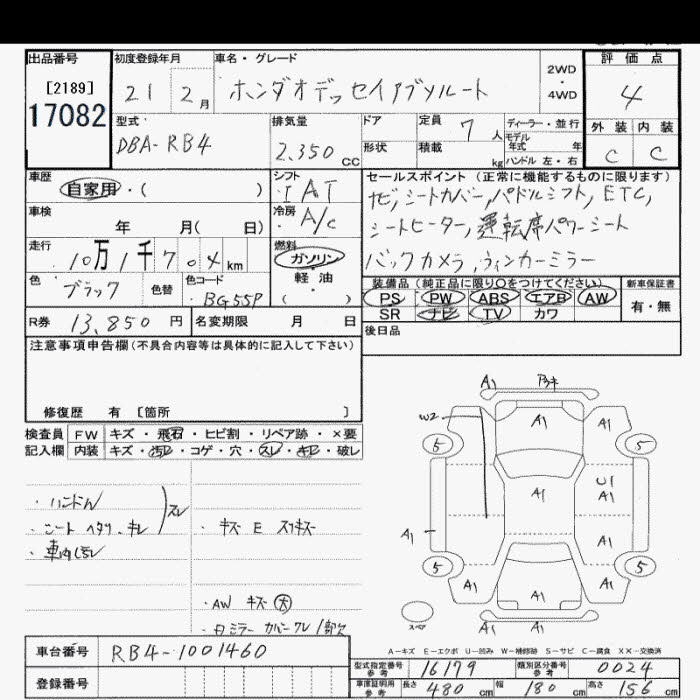 出品番号 初度登録年月 車名・グレード 評価点
[2189] 17082 21 2月 ホンダオデッセイアブソルート 2WD・4WD 4
型式 DBA-RB4 排気量 2.350cc ドア 定員 7人 ディーラー・並行 外装 内装
形状 積載 kg モデル年式 年 ハンドル 左・右 C C
車歴 自家用・( ) シフト IAT セールスポイント (正常に機能するものに限ります)
車検 年 月( 日) 冷房 A/C ナビ,シートカバー,パドルシフト,ETC,
シートヒーター,運転席パワーシート
走行 10万1千704km 燃料 ガソリン 軽油 ( ) バックカメラ,ウィンカーミラー
色 ブラック 色替 色コード BG55P 装備品 (純正品に限り○をつけてください) 新車保証書
PS PW ABS エアB AW 有・無
SR ナビ TV カワ
R券 13,850円 名変期限 月 日 後日品
注意事項申告欄 (不具合内容等は具体的に記入して下さい)
修復歴 有 [箇所 ]
検査員 FW キズ・飛石・ヒビ割・リペア跡・×要
記入欄 内装 キズ・汚レ・コゲ・穴・スレ・キレ・破レ
・ハンドル スレ
・シート ヘタリ・キレ
・車内汚レ
・キズ E スリキズ
・AW キズ 大
A1 A1 A1
W2
5 5
A1 U1
A1
A1 A1
5 5
A1 A1 A1
A1 A1
スペア
A-キズ E-エクボ U-凹み W-補修跡 S-サビ C-腐食 X X-交換済
車台番号 RB4-1001460
型式指定番号 参考 16179 類別区分番号 参考 0024
登録番号
車庫証明用 参考 長さ 480cm 幅 180cm 高さ 156cm